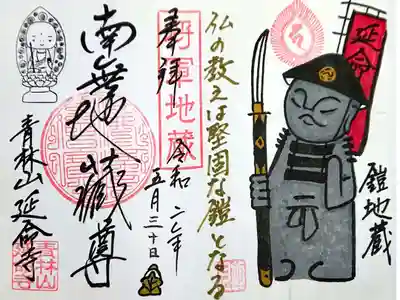 延命
鎧地蔵
仏の教えは堅固な鎧となる
将軍地蔵
奉拝
令和二年
五月三十日
南無地蔵尊
青林山 延命寺
青林山